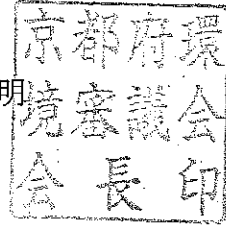 明
京都府環
境審議会
会長印